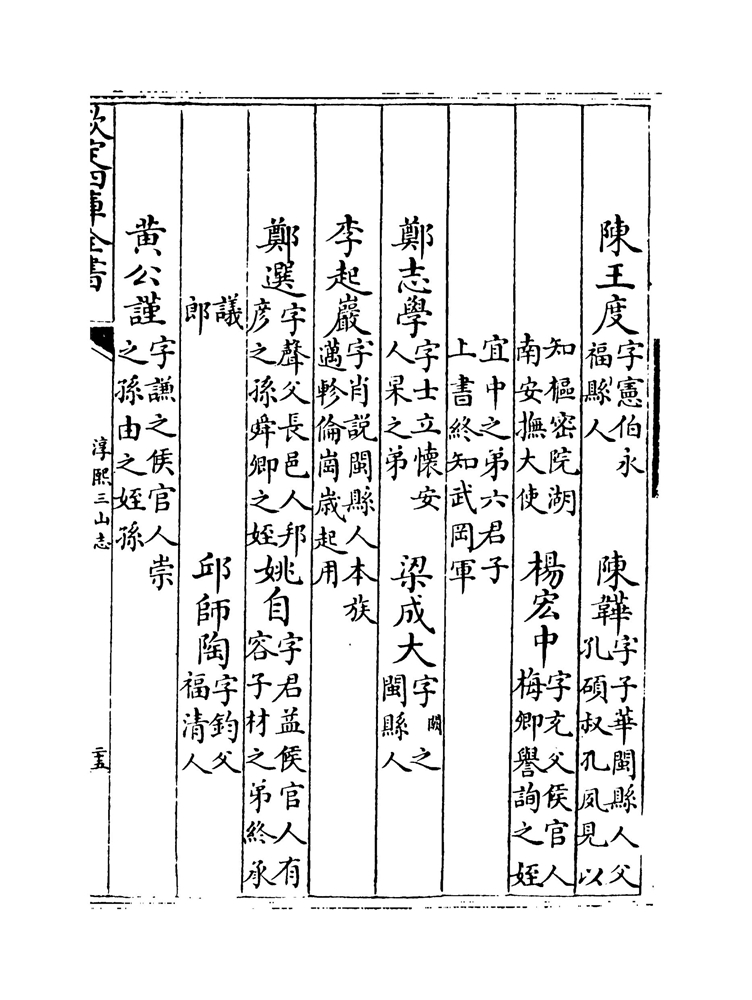 陳王度字憲伯永福縣人　陳韡字子華閩縣人父孔碩叔孔夙見以
知樞密院湖南安撫大使　楊宏中字充父侯官人梅卿譽詢之姪
宜中之弟六君子上書終知武岡軍
鄭志學字士立懷安人杲之弟　梁成大字闕之閩縣人
李起巖字肖説閩縣人本族邁軫倫崗歳起用
鄭選字聲父長邑人邦彦之孫舜卿之姪　姚自字君益侯官人有容子材之弟終承
議郎　邱師陶字鈞父福清人
黄公謹字謙之侯官人崇之孫由之姪孫
欽定四庫全書
淳熙三山志